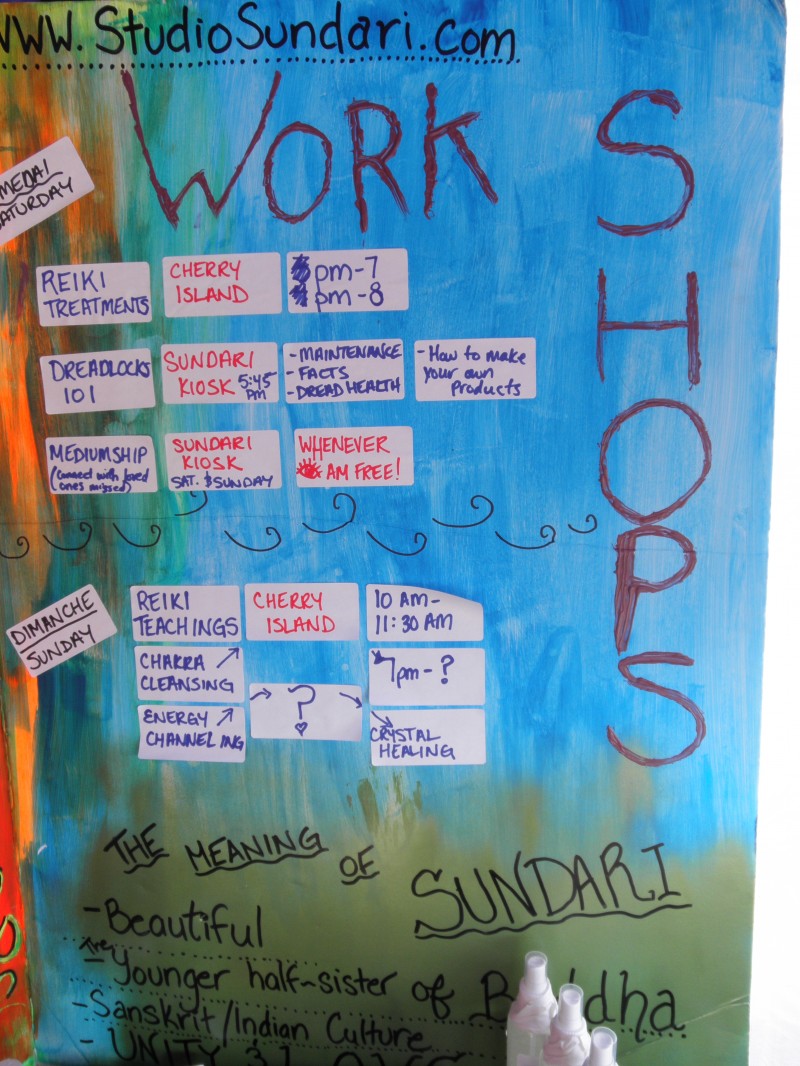 WWW.StudioSundari.com
WORK
SHOPS
SATURDAY
REIKI
TREATMENTS
CHERRY
ISLAND
pm-7
pm-8
DREADLOCKS
101
SUNDARI
KIOSK 5:45
PM
-MAINTENANCE
-FACTS
-DREAD HEALTH
-How to make
your own
Products
MEDIUMSHIP
(connect with loved
ones missed)
SUNDARI
KIOSK
SAT. & SUNDAY
WHENEVER
AM FREE!
DIMANCHE
SUNDAY
REIKI
TEACHINGS
CHERRY
ISLAND
10 AM-
11:30 AM
CHAKRA
CLEANSING
7pm-?
ENERGY
CHANNELING
?
CRYSTAL
HEALING
THE MEANING OF SUNDARI
-Beautiful
-The Younger half-sister of Buddha
-Sanskrit/Indian Culture
- UNITY